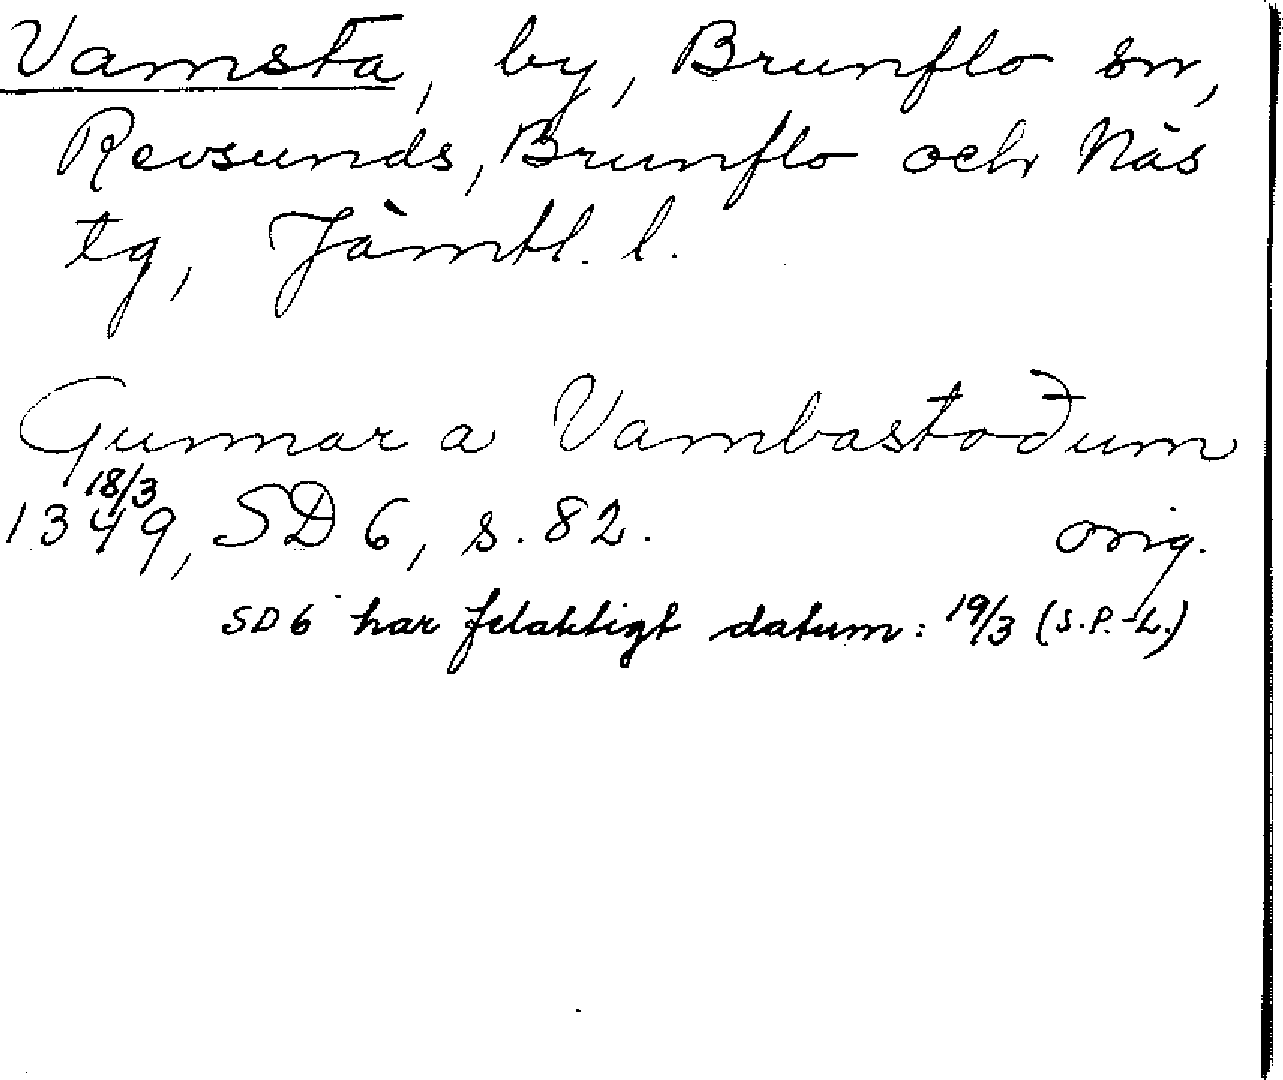 Vamsta, by, Brunflo sn,
Revsunds, Brunflo och Näs
tg, Jämtl. l.
Gunnar a Vambastoðum
18/3
1349, SD 6, s. 82. orig.
SD 6 har felaktigt datum: 19/3 (S.P.-L.)